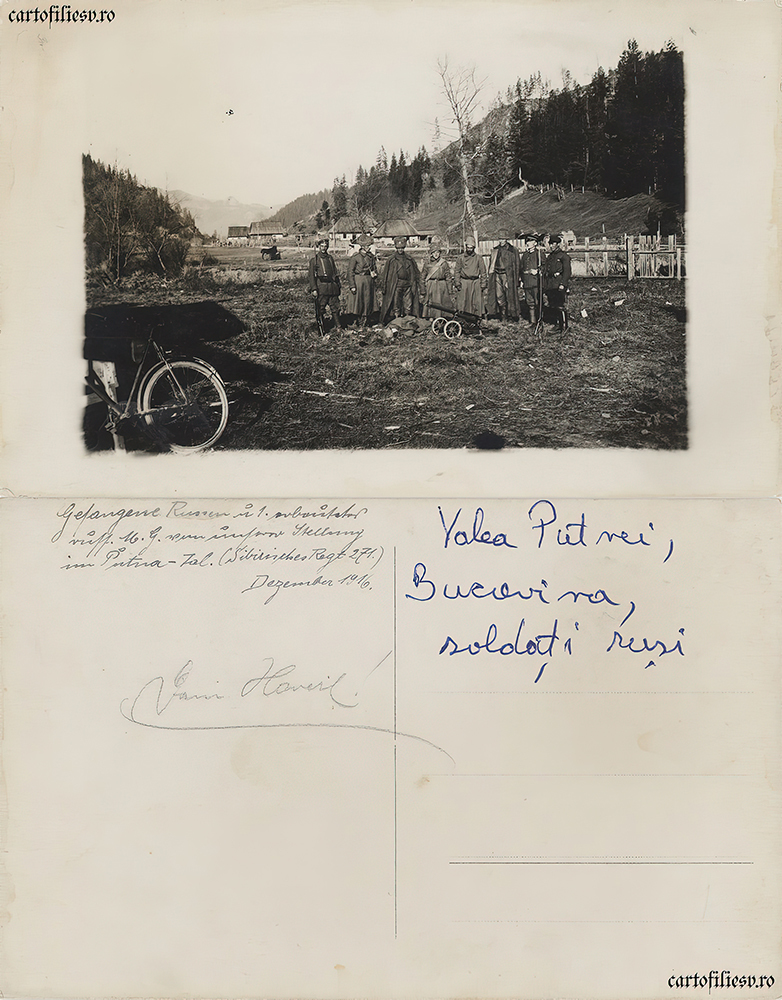 cartofiliesv.ro
Gefangene Russen u 1. erbeutetes
russ. M. G. von unserer Stellung
im Putna-Tal. (Sibirisches Regt 271.)
Dezember 1916.
Valea Putnei,
Bucovina,
soldați ruși
cartofiliesv.ro